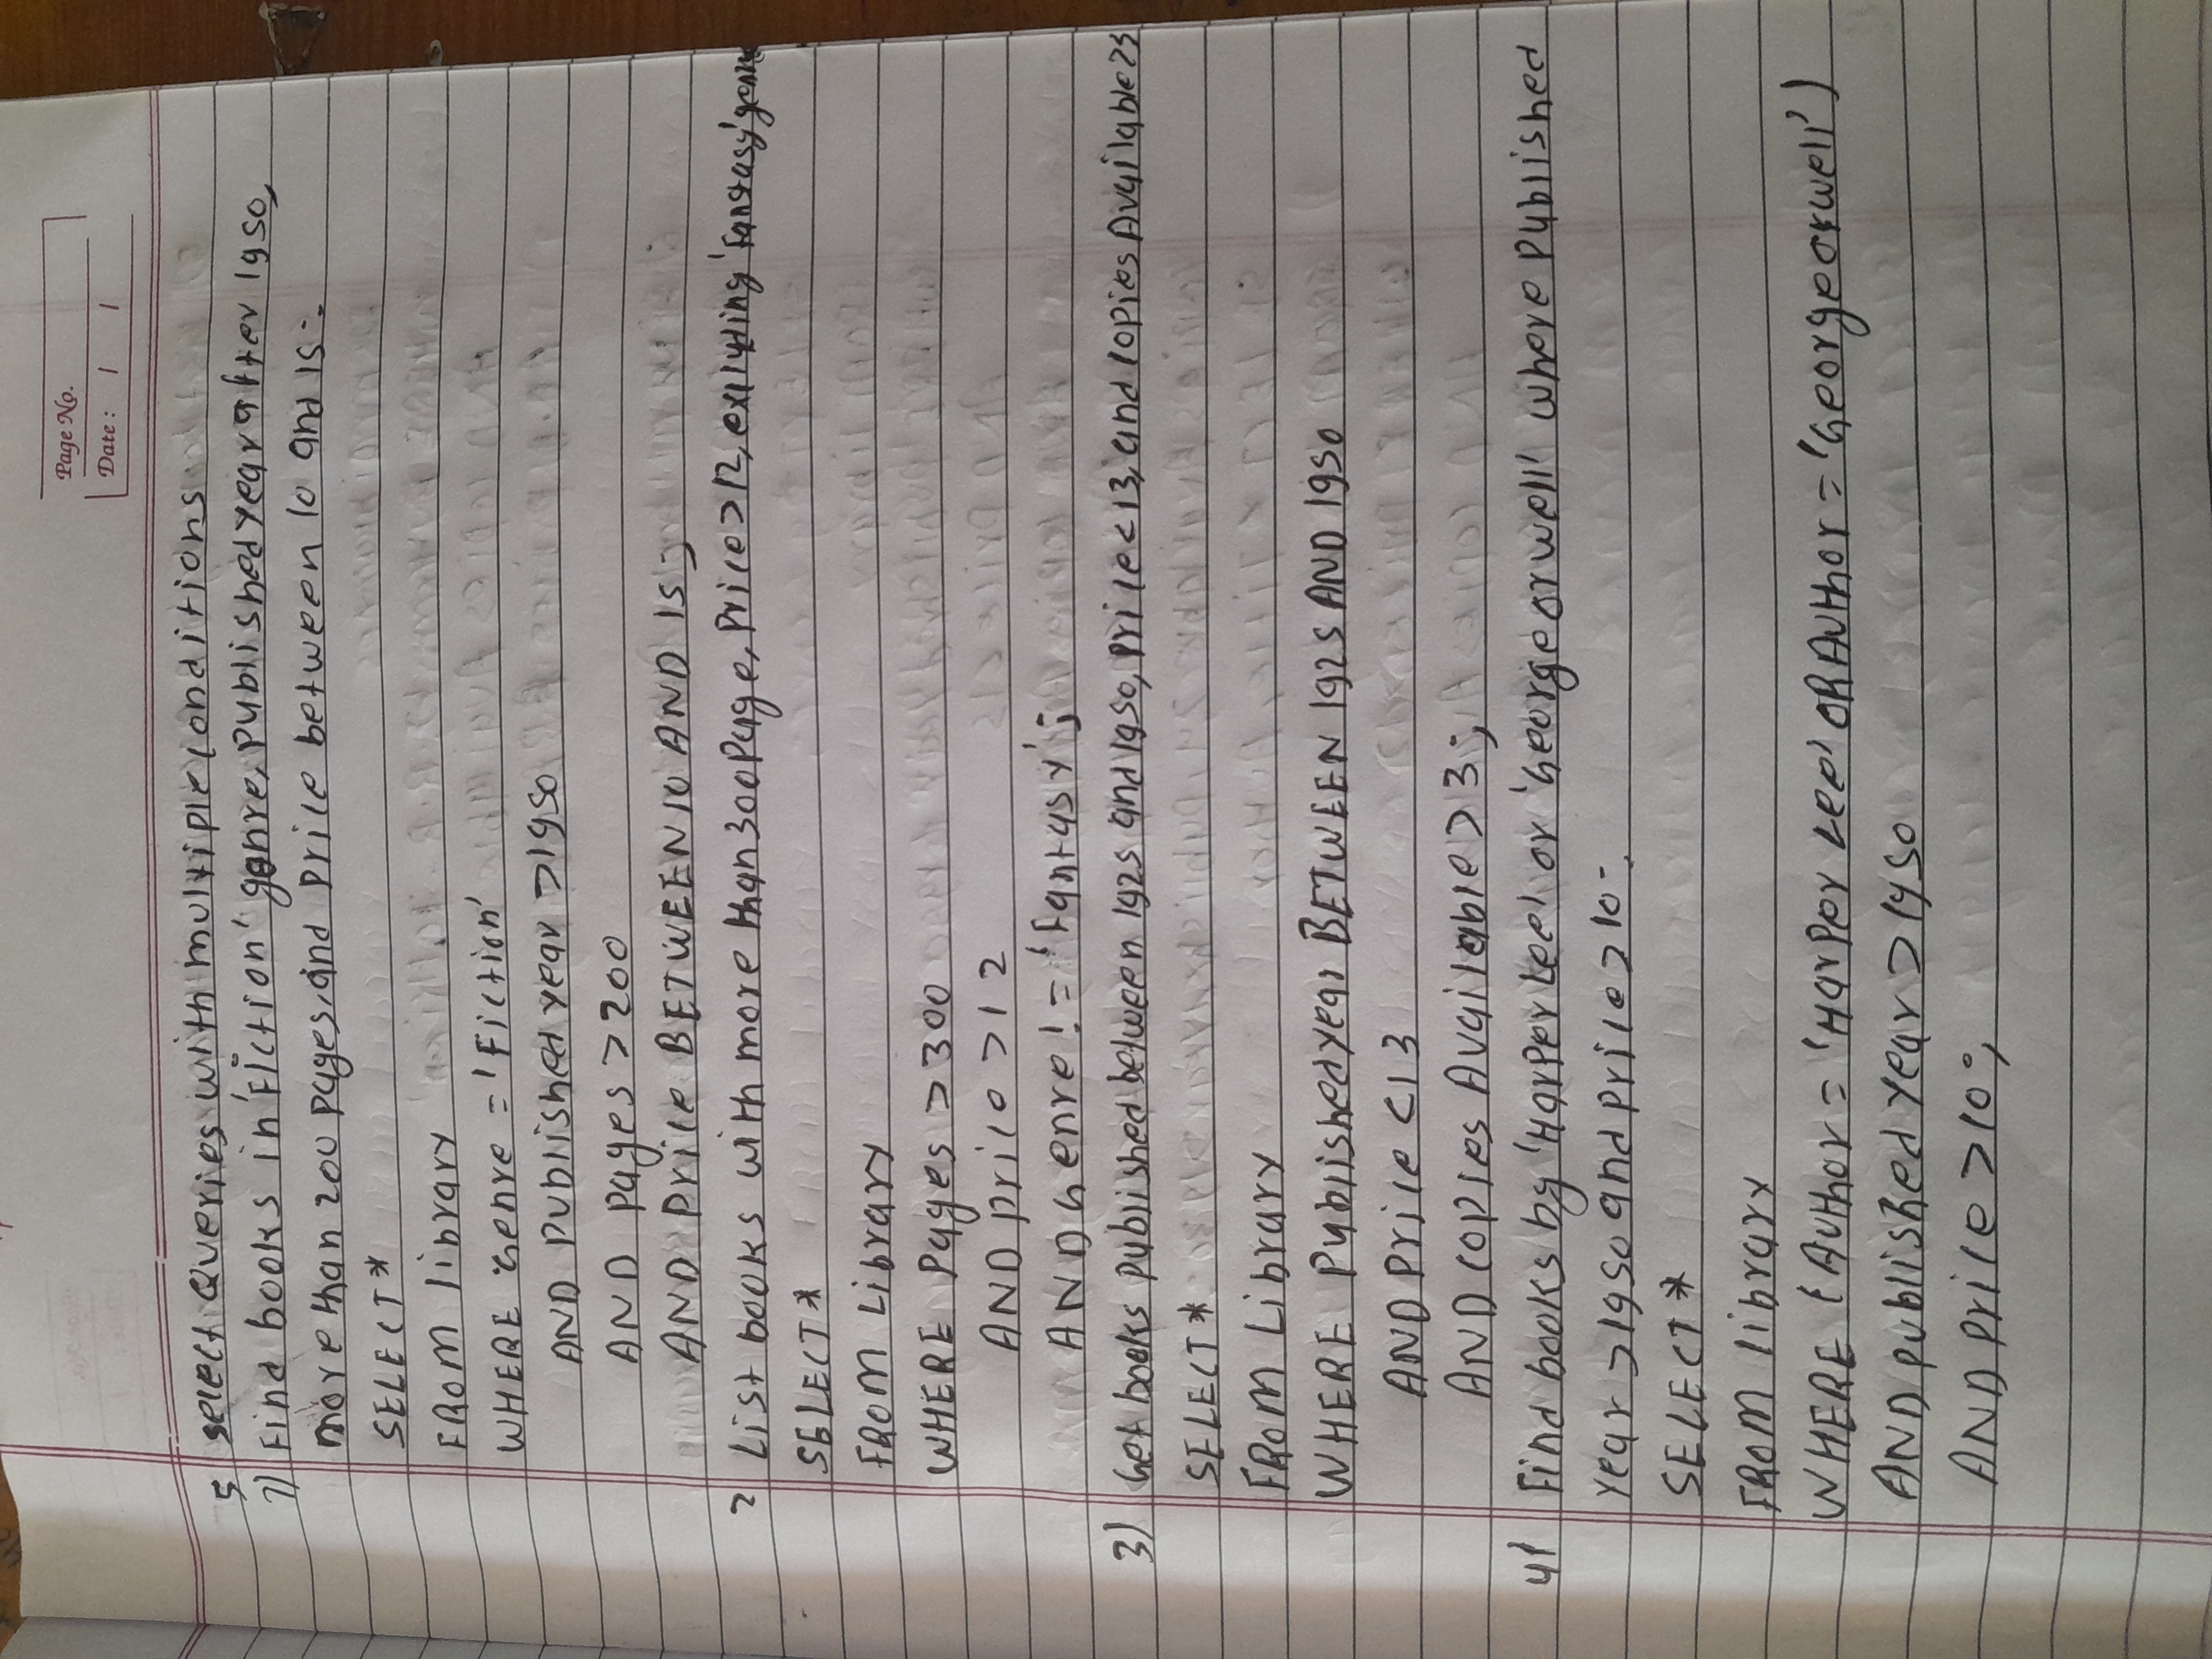 Page No.
Date : / /
5 select Queries with multiple conditions
1) Find books in 'Fiction' genre, Published year after 1950,
more than 200 pages, and Price between 10 and 15:-
SELECT *
FROM library
WHERE Genre = 'Fiction'
AND Published year > 1950
AND pages > 200
AND Price BETWEEN 10 AND 15;
2 List books with more than 300 Page, Price > 12, excluding 'fantasy' genre
SELECT *
FROM Library
WHERE Pages > 300
AND price > 12
AND Genre != 'fantasy';
3) Get books published between 1925 and 1950, Price < 13, and copies Available >3
SELECT *
FROM Library
WHERE Published year BETWEEN 1925 AND 1950
AND Price < 13
AND Copies Available > 3;
4) Find books by 'Harper Lee' or 'George orwell' where Published
year > 1950 and price > 10:-
SELECT *
FROM library
WHERE (Author = 'Harper Lee' OR Author = 'George orwell')
AND published year > 1950
AND price > 10;